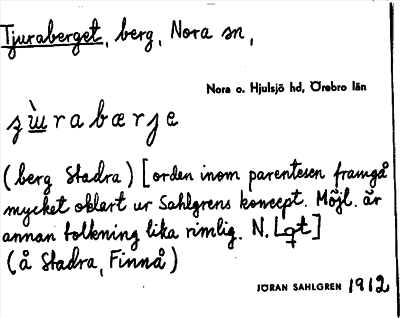 Tjuraberget, berg, Nora sn,
Nora o. Hjulsjö hd, Örebro län
(berg Stadra) [orden inom parentesen framgå
mycket oklart ur Sahlgrens koncept. Möjl. är
annan tolkning lika rimlig. N. Lqt]
(å Stadra, Finnå)
JÖRAN SAHLGREN 1912